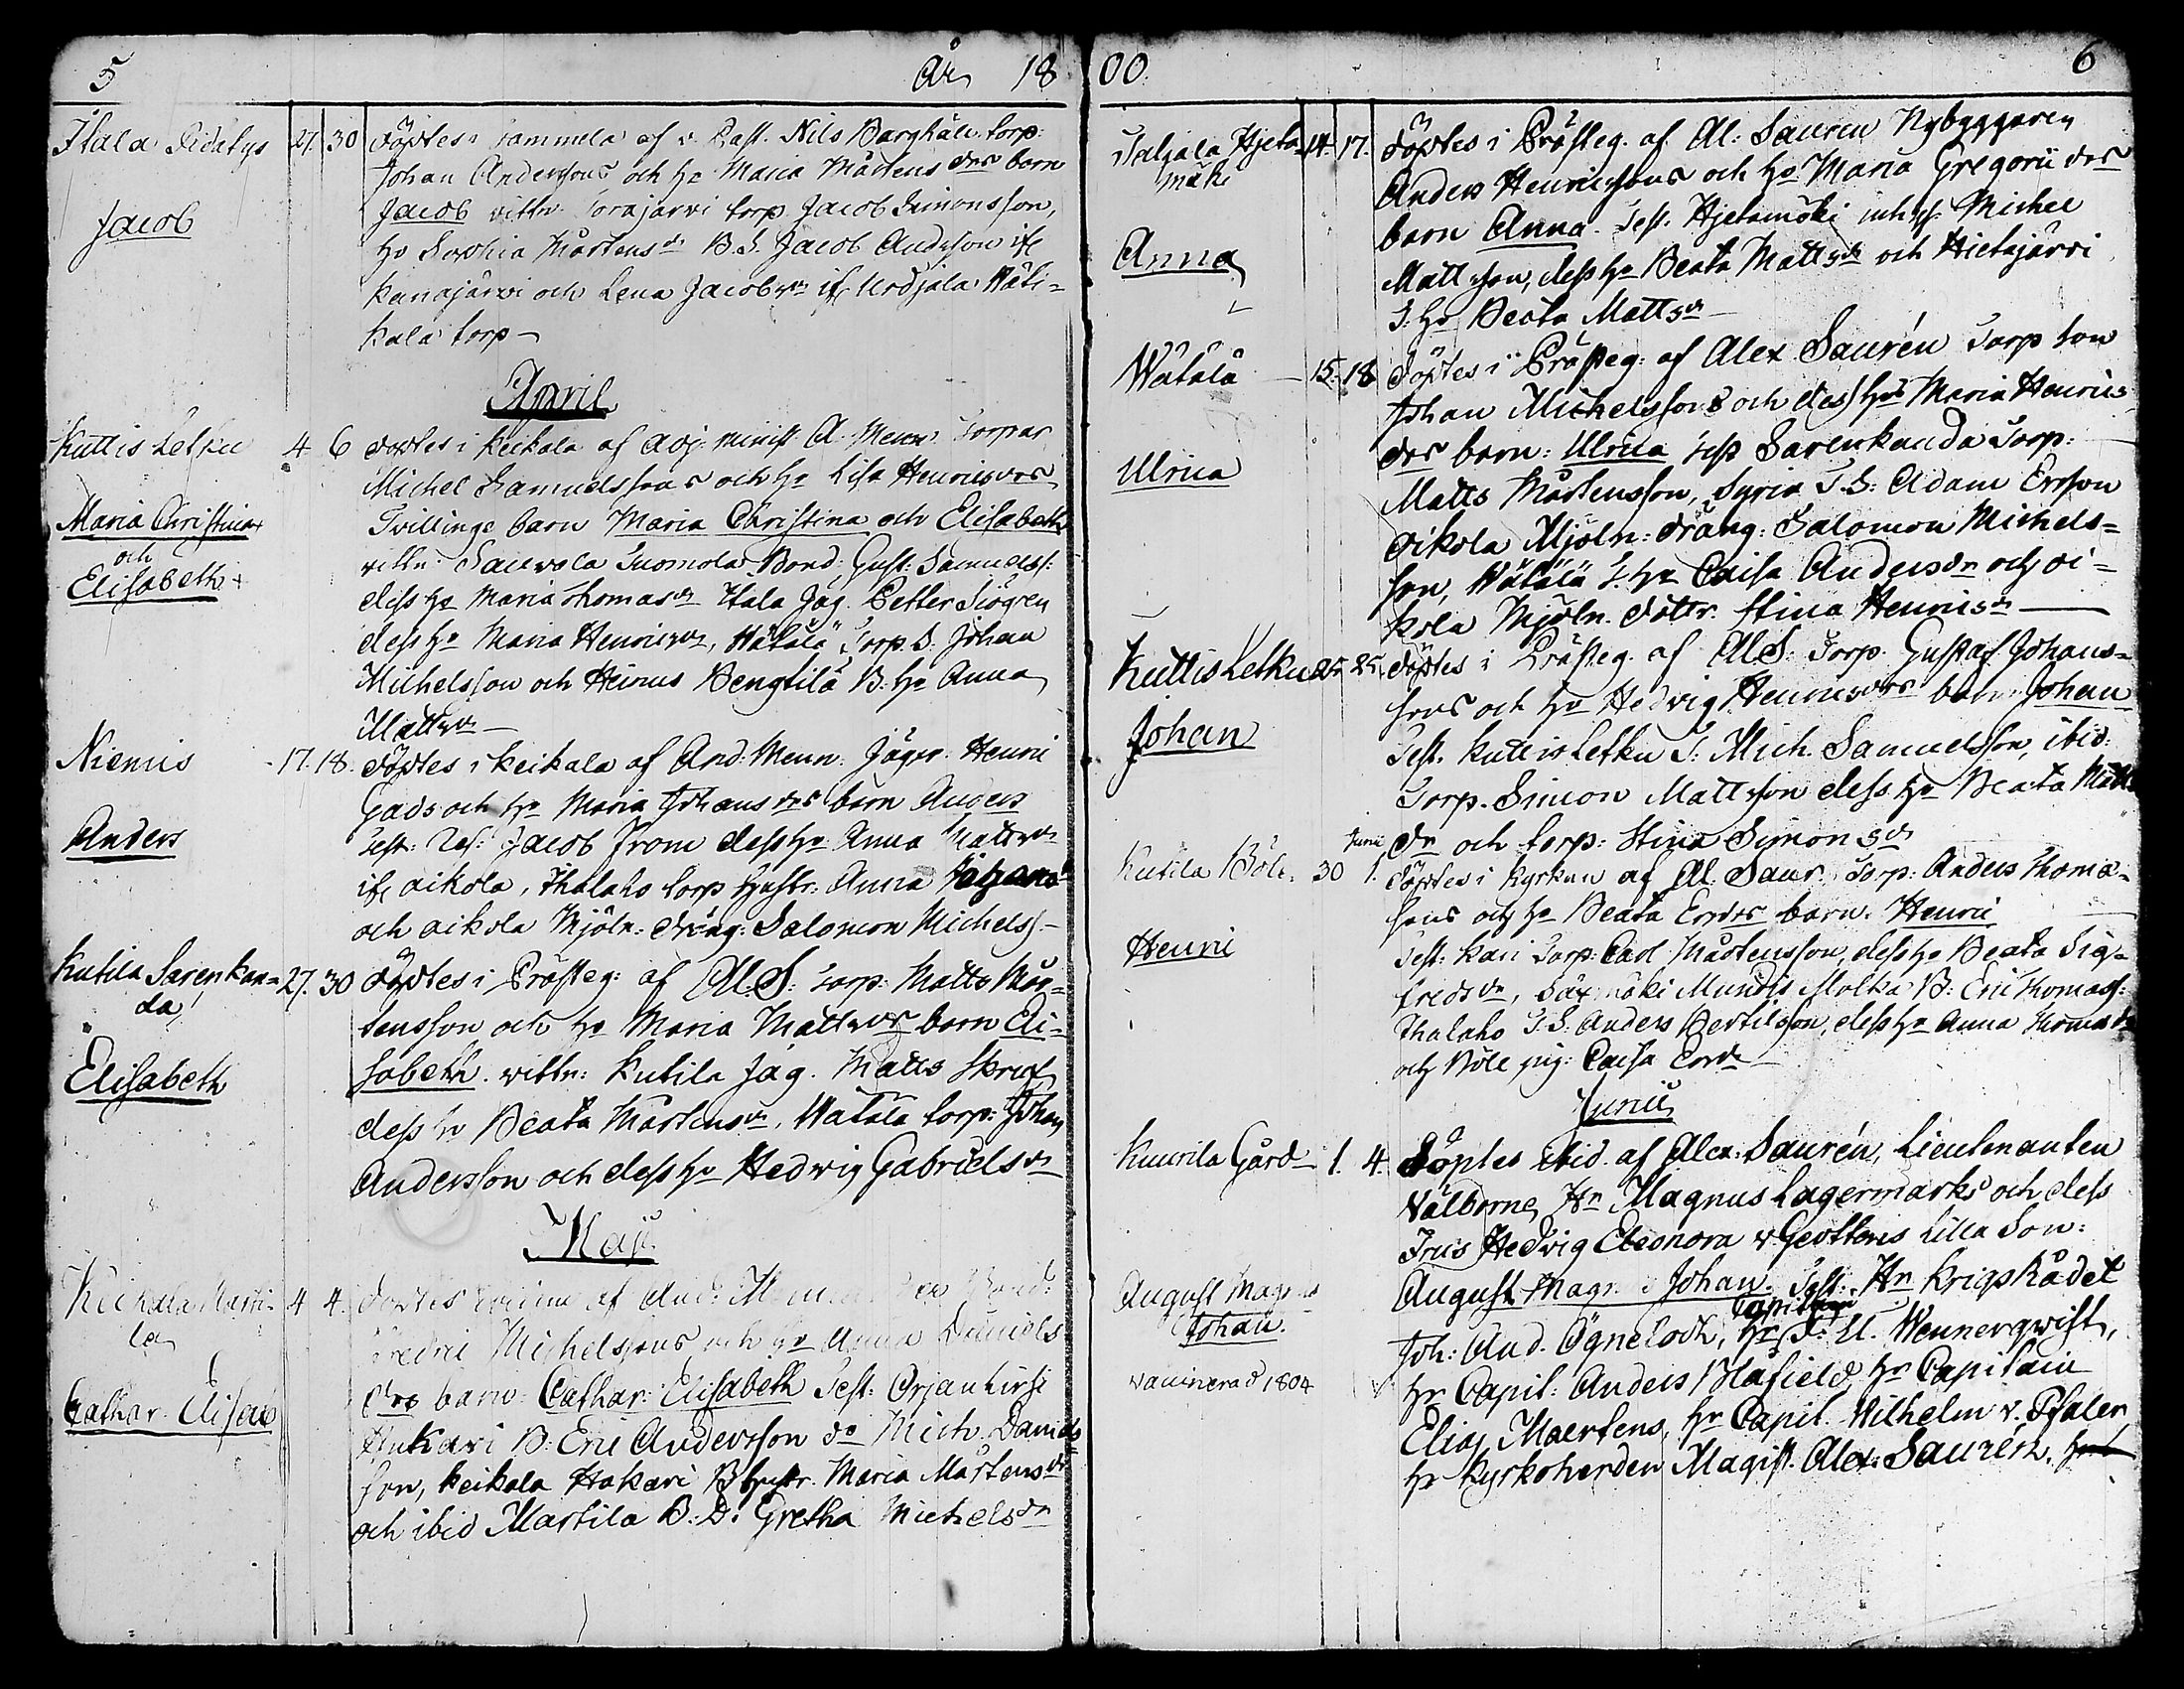 5 År 18
Itala Pidatys 27. 30 döptes i Sammula af v. Past. Nils Barghäll torp:
Johan Anderssons och ho Maria Mårtens drs barn
Jacob
Jacob vittn. Torajärvi torp Jacob Simonsson,
ho Sophia Mårtensdr B.S. Jacob Andersson if
Kanajärvi och Lena Jacobsdr if Urdjala Wäli=
kala torp -
April
Kuttis Letku 4 6 döptes i Keikala af Adj. minist A. Menn. Torpar
Michel Samuelssons och ho Lisa Henricsdrs
Maria Christina +
och
Elisabeth +
Tvillinge barn Maria Christina och Elisabeth
vittn. Sauvola Tuomola Bond: Gust: Samuelss:
dess ho Maria Thomasdr Itala Jäg. Petter Siögren
dess ho Maria Henricsdr, Wätälä Torp. S. Johan
Michelsson och Heinus Bengtilä B. ho Anna
Mattsdr -
Niemis 17. 18. döptes i Keikala af And: Menn: Jägar. Henric
Gads och ho Maria Johansdrs barn Anders
Anders
Test: Ref: Jacob From dess ho Anna Mattsdr
if Oikola, Thalaho torp hustr. Anna Johansdr
och Oikola Mjöln: dräng: Salomon Michelss. -
Kutila Sarenkan=
da 27. 30 döptes i Prästeg: af Al. S: Torp: Matts Mår=
tensson och ho Maria Mattsdrs barn Eli=
Elisabeth
sabeth. vittn: Kutila Jäg. Matts
dess ho Beata Mårtensdr, Wätälä torp: Johan
Andersson och dess ho Hedvig Gabrielsdr
Maji
Keikala Marti=
la 4 4. döptes af And: Bond:
Fredric Michelssons och ho Anna Daniels
Cathar. Elisab
drs barn: Cathar: Elisabeth Test: Orjanhirsi
Hukari B: Eric Andersson do Mich. Daniels
son, Keikala Hakari B hustr. Maria Mårtensdr
och ibid Martila B. D: Gretha Michelsdr
00. 6
Taljala Hjeta
mäki 14. 17. döptes i Prästeg. af Al: Sauren Nybyggaren
Anders Henricssons och ho Maria Gregorii drs
Anna
barn Anna. Test. Hjetamäki inhys. Michel
Mattsson, dess ho Beata Mattsdr och Hietajärvi
S. ho Beata Mattsdr -
Wätälä 15. 18 döptes i Prästeg: af Alex Saurén Torp son
Johan Michelssons och dess hos Maria Henrics
Ulrica
drs barn: Ulrica Test Sarenkanda Torp:
Matts Mårtensson, Syria T.S: Adam Ersson
Oikola Mjöln: dräng: Salomon Michels=
son, Wätälä T. ho Caisa Andersdr och Oi=
kola Mjöln. dottr. Stina Henricsdr -
Kuttis Letku 25. 25. döptes i Prästeg. af Al S: Torp. Gustaf Johans=
sons och ho Hedvig Henricsdrs barn Johan
Johan
Test. Kuttis Letku T: Mich. Samuelsson, ibid:
Torp. Simon Mattsson dess ho Beata Matts
dr och torp: Stina Simonsdr
Kutila Böle 30 Junii 1. döptes i Kyrkan af Al. Saur. Torp: Anders Thomæ=
sons och ho Beata Ersdrs barn: Henric
Henric
Test: Kari Torp: Carl Mårtensson, dess ho Beata Sig=
fredsdr, Saxmäki Mundis Molka B: Eric Thomass:
Thalaho T.S. Anders Bertilsson, dess ho Anna Thomasdr
och Böle pig: Caisa Ersdr -
Junii
Kuurila Gård 1. 4. Döptes ibid. af Alex. Saurén, Lieutenanten
Välborne Hr Magnus Lagermarks och dess
Frus Hedvig Eleonora v. Gerttens Lilla Son:
August Magnus
Johan.
August Magn. Johan. Test: Hr Krigs Rådet
Joh: And. Ögneloch, Hr Capitain J: U. Wennerqvist,
vaccinerad 1804
hr Capit: Anders Hafield, hr Capitain
Elias Maertens, hr Capit. Wilhelm v. Pfaler
hr Kyrkoherden Magist. Alex: Saurén.